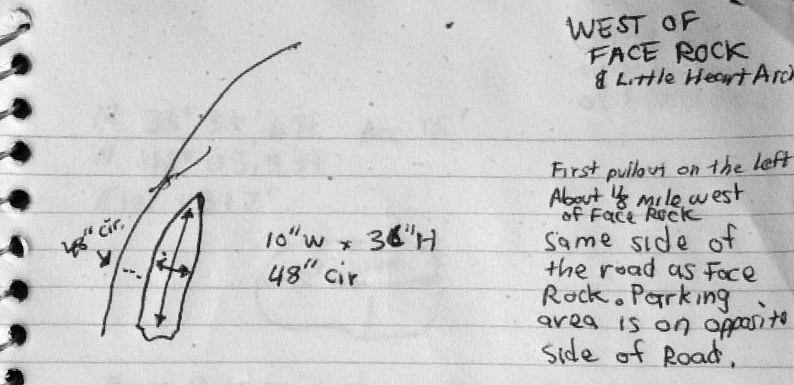 WEST OF
FACE ROCK
& Little Heart Arch
First pullout on the left
About 1/8 mile west
of Face Rock
same side of
the road as Face
Rock. Parking
area is on opposite
side of Road.
48" cir.
10"W x 36"H
48" cir